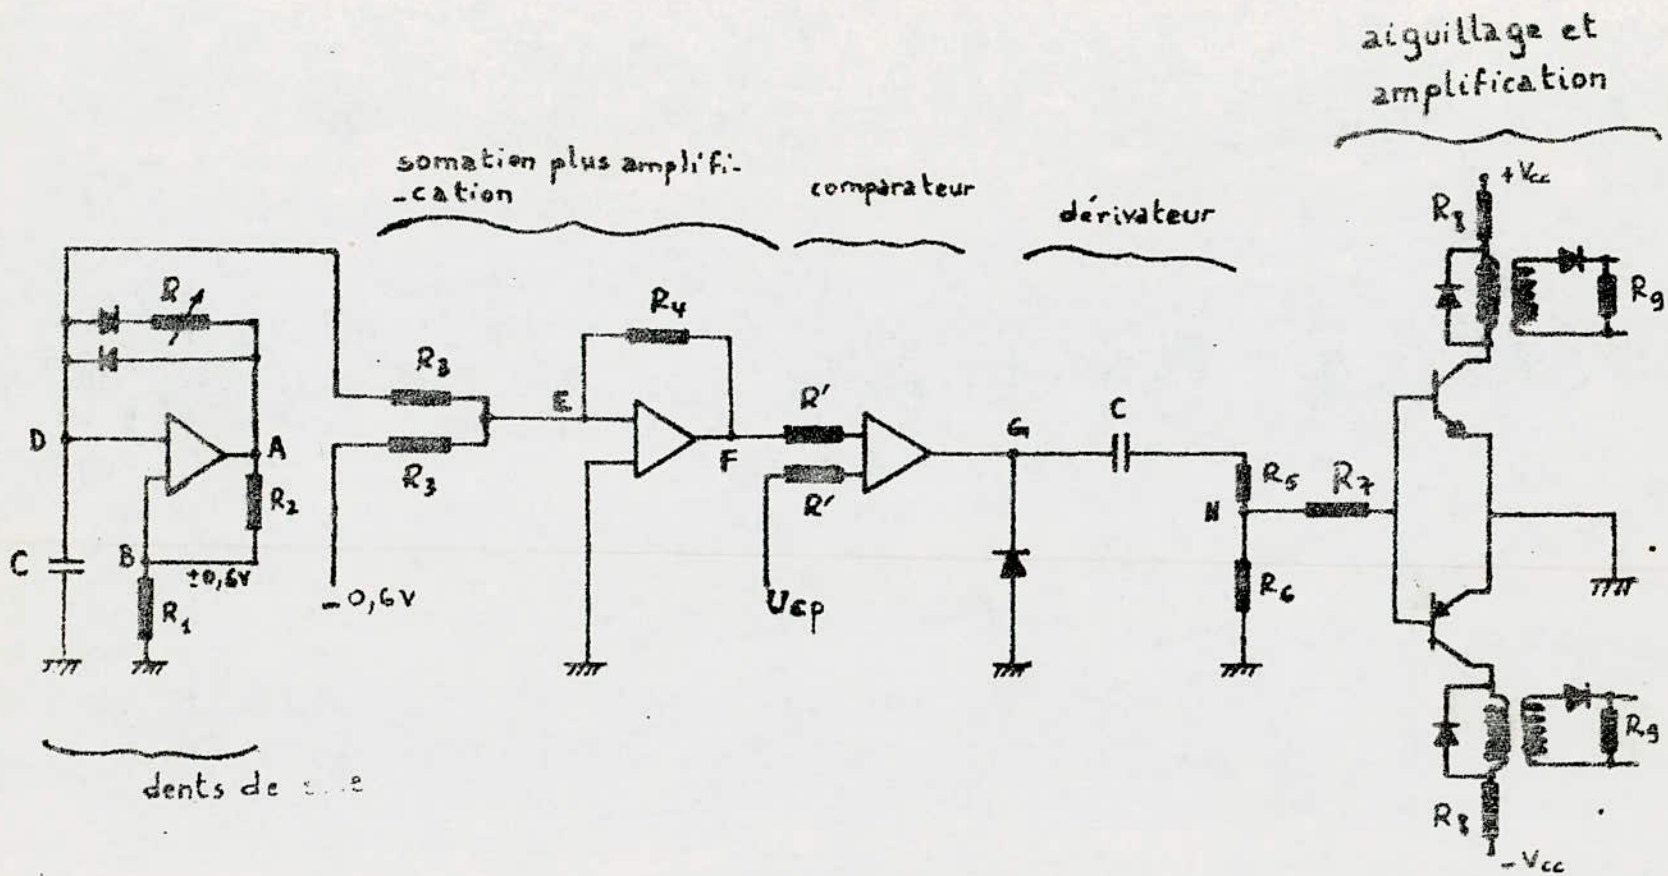 aiguillage et
amplification
somation plus amplifi-
-cation
comparateur
dérivateur
+Vcc
R8
R9
R
R4
R3
R3
E
F
R'
R'
G
C
R5
N
R7
R6
D
A
R2
B
±0,6V
C
R1
-0,6V
Ucp
R8
R9
-Vcc
dents de